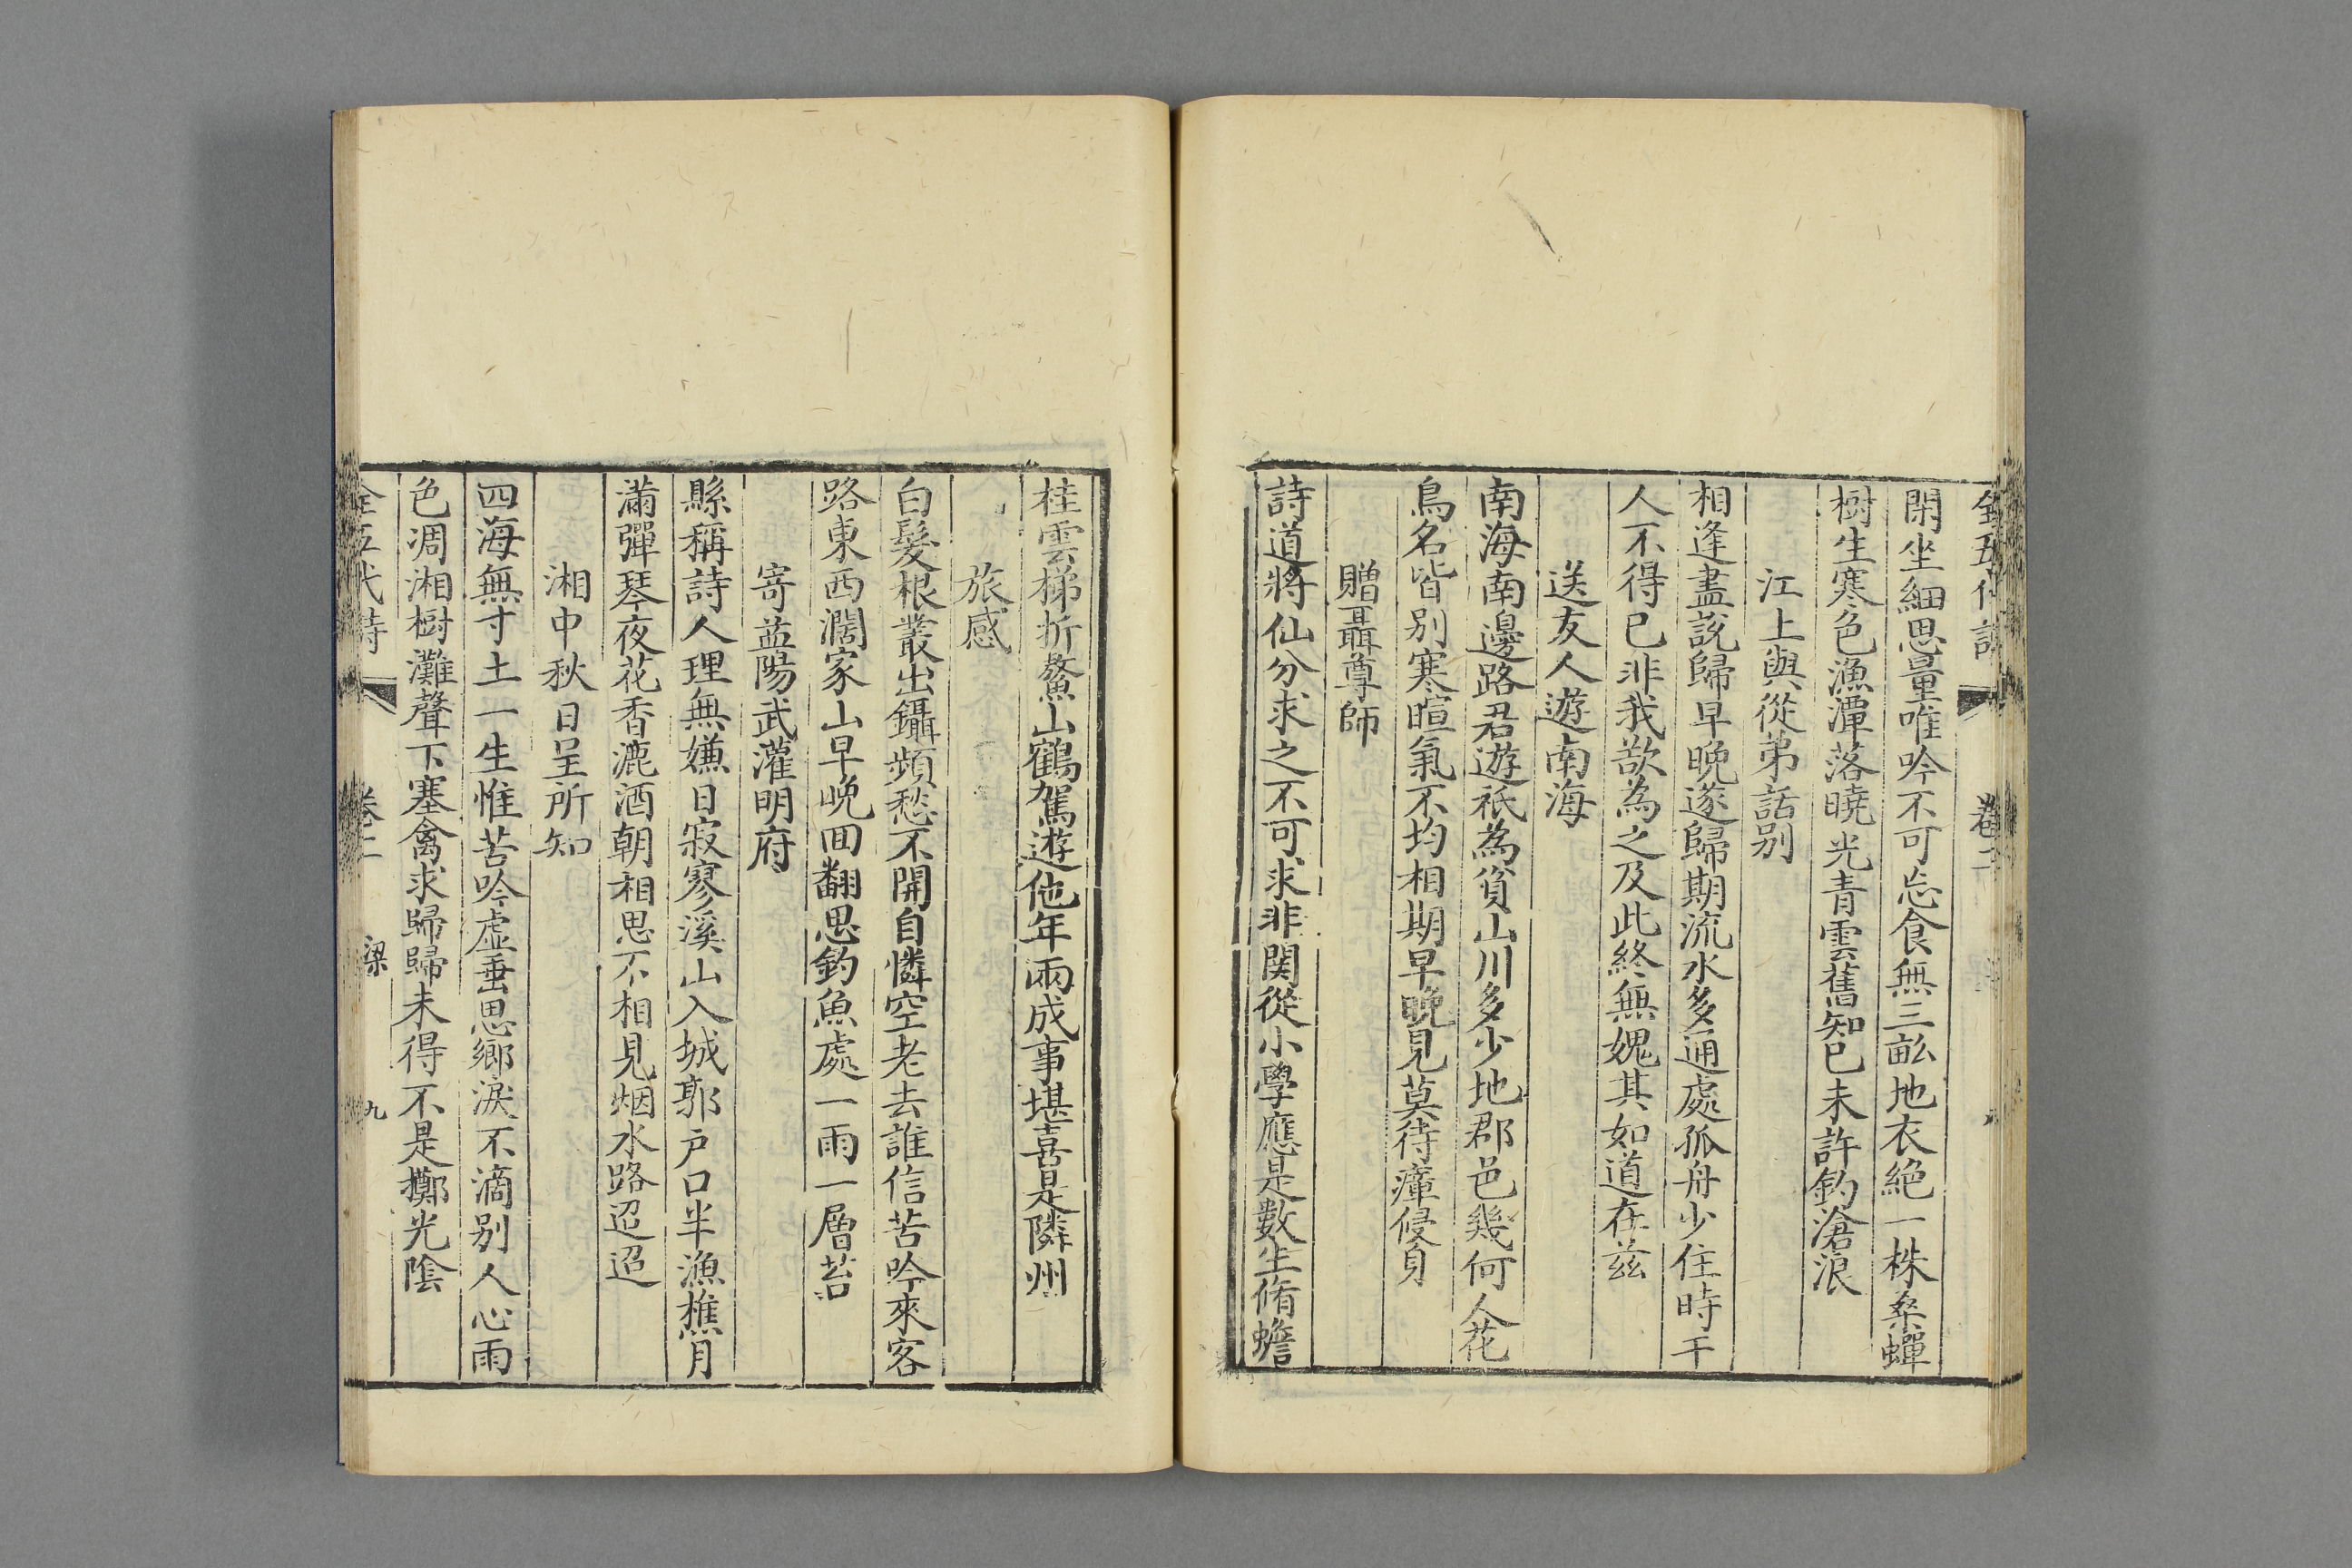 全五代詩 卷二
閑坐細思量唯吟不可忘食無三畝地衣絶一株桑蟬
樹生寒色漁潭落曉光青雲舊知已未許釣滄浪
江上與從弟話別
相逢盡說歸早晚遂歸期流水多通處孤舟少住時干
人不得已非我欲為之及此終無媿其如道在茲
送友人遊南海
南海南邊路君遊祇為貧山川多少地郡邑幾何人花
鳥名皆别寒暄氣不均相期早晚見莫待瘴侵身
贈聶尊師
詩道將仙分求之不可求非関從小學應是數生脩蟾
桂雲梯折鰲山鶴駕遊他年兩成事堪喜是隣州
旅感
白髮根叢出鑷頻愁不開自憐空老去誰信苦吟來客
路東西濶家山早晚囬翻思釣魚處一雨一層苔
寄益陽武灌明府
縣稱詩人理無嫌日寂寥溪山入城郭户口半漁樵月
滿彈琴夜花香漉酒朝相思不相見烟水路迢迢
湘中秋日呈所知
四海無寸土一生惟苦吟虛垂思鄉淚不滴别人心雨
色凋湘樹灘聲下塞禽求歸歸未得不是擲光陰
全五代詩 卷二 梁 九